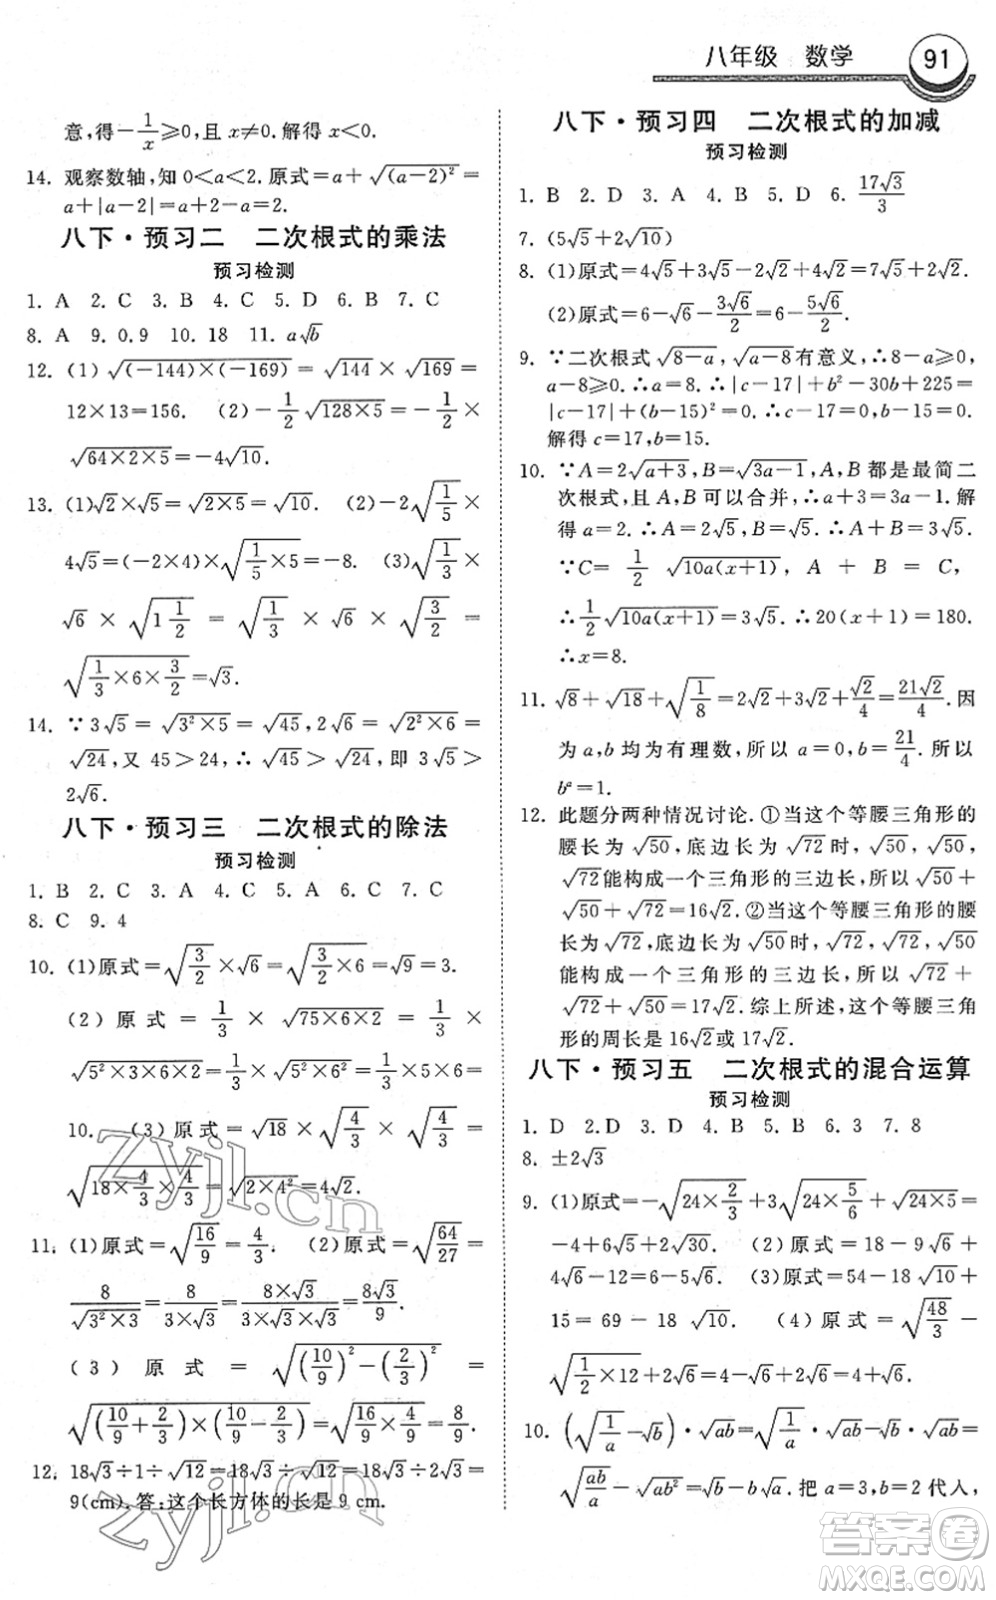 八年级 数学 91
意,得-1/x≥0,且 x≠0.解得 x<0.
14. 观察数轴,知 0<a<2.原式=a+√((a-2)²)=
a+|a-2|=a+2-a=2.
八下·预习二 二次根式的乘法
预习检测
1. A 2. C 3. B 4. C 5. D 6. B 7. C
8. A 9. 0.9 10. 18 11. a√b
12. (1) √((-144)×(-169))=√144×√169=
12×13=156. (2)-1/2√(128×5)=-1/2×
√(64×2×5)=-4√10.
13. (1)√2×√5=√(2×5)=√10. (2)-2√(1/5)×
4√5=(-2×4)×√(1/5×5)=-8. (3)√(1/3)×
√6×√(1 1/2)=√(1/3)×√6×√(3/2)=
√(1/3×6×3/2)=√3.
14. ∵3√5=√(3²×5)=√45,2√6=√(2²×6)=
√24,又 45>24,∴√45>√24,即 3√5>
2√6.
八下·预习三 二次根式的除法
预习检测
1. B 2. C 3. A 4. C 5. A 6. C 7. C
8. C 9. 4
10. (1)原式=√(3/2)×√6=√(3/2×6)=√9=3.
(2)原式=1/3×√(75×6×2)=1/3×
√(5²×3×6×2)=1/3×√(5²×6²)=1/3×5×6=
10. (3)原式=√18×√(4/3)×√(4/3)=
√(18×4/3×4/3)=√(2×4²)=4√2.
11. (1)原式=√(16/9)=4/3. (2)原式=√(64/27)=
8/√(3²×3)=8/(3×√3)=(8×√3)/(3×√3×√3)=8√3/9.
(3)原式=√((10/9)²-(2/3)²)=
√((10/9+2/3)×(10/9-2/3))=√(16/9×4/9)=8/9.
12. 18√3÷1÷√12=18√3÷√12=18√3÷2√3=
9(cm).答:这个长方体的长是 9 cm.
八下·预习四 二次根式的加减
预习检测
1. B 2. D 3. A 4. B 5. D 6. 17√3/3
7. (5√5+2√10)
8. (1)原式=4√5+3√5-2√2+4√2=7√5+2√2.
(2)原式=6-√6-3√6/2=6-5√6/2.
9. ∵二次根式√(8-a),√(a-8)有意义,∴8-a≥0,
a-8≥0.∴a=8.∴|c-17|+b²-30b+225=
|c-17|+(b-15)²=0.∴c-17=0,b-15=0.
解得 c=17,b=15.
10. ∵A=2√(a+3),B=√(3a-1),A,B 都是最简二
次根式,且 A,B 可以合并,∴a+3=3a-1.解
得 a=2.∴A=2√5,B=√5.∴A+B=3√5.
∵C=1/2√(10a(x+1)),A+B=C,
∴1/2√(10a(x+1))=3√5.∴20(x+1)=180.
∴x=8.
11. √8+√18+√(1/8)=2√2+3√2+√2/4=21√2/4.因
为 a,b 均为有理数,所以 a=0,b=21/4.所以
bᵃ=1.
12. 此题分两种情况讨论.①当这个等腰三角形的
腰长为√50,底边长为√72时,√50,√50,
√72能构成一个三角形的三边长,所以√50+
√50+√72=16√2.②当这个等腰三角形的腰
长为√72,底边长为√50时,√72,√72,√50
能构成一个三角形的三边长,所以√72+
√72+√50=17√2.综上所述,这个等腰三角
形的周长是 16√2或 17√2.
八下·预习五 二次根式的混合运算
预习检测
1. D 2.D 3. D 4. B 5. B 6. 3 7. 8
8. ±2√3
9. (1)原式=-√(24×2/3)+3√(24×5/6)+√(24×5)=
-4+6√5+2√30. (2)原式=18-9-(6-
4√6-12=6√5. (3)原式=54-18√10+
15=69-18√10. (4)原式=√(48/3)-
√(1/2×12)+2√6=4-√6+2√6=4+√6.
10. (√(1/a)-√b)·√ab=√(1/a)·√ab-√b·√ab=
√(ab/a)-√(ab²)=√b-b√a.把 a=2代入,
Zyjl.cn
zyjl.cn
答案圈
MXQE.COM